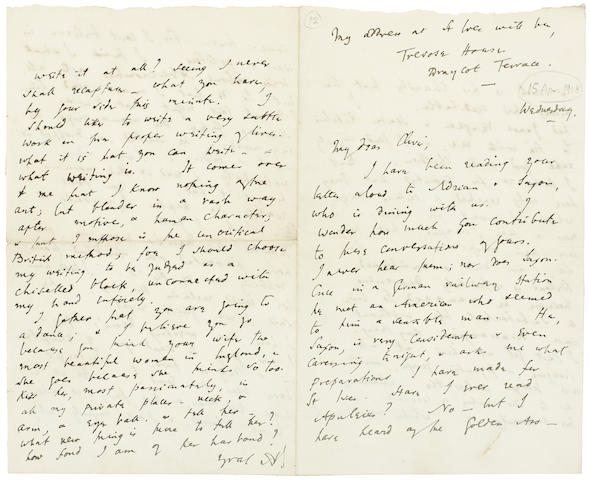 12
My address at St Ives will be,
Trevose House
Draycot Terrace.
15 Apr. 1908
Wednesday.
My dear Clive,
I have been reading your
letter aloud to Adrian & Saxon,
who is dining with us. I
wonder how much you contribute
to these conversations of yours.
I never hear them; nor does Saxon.
Once in a German railway station
he met an American who seemed
to him a sensible man. He,
Saxon, is very considerate & even
caressing tonight, & asks me what
preparations I have made for
St Ives. Have I ever read
Apuleius? No — but I
have heard of the Golden Ass —
write it at all? seeing I never
shall recapture what you have,
by your side this minute. I
should like to write a very subtle
work on the proper writing of lives.
what it is that you can write —
what writing is. It comes over
me that I know nothing of the
art; but blunder in a rash way
after motive, & human character;
& that I suppose is the uncritical
British method; for I should choose
my writing to be judged as a
chiselled block, unconnected with
my hand entirely.
I gather that you are going to
a dance; & I believe you go
because you think your wife the
most beautiful woman in England, &
she goes because she thinks so too.
Kiss her, most passionately, in
all my private places — neck, &
arm, & eyeball, & tell her —
what new thing is there to tell her?
how fond I am of her husband?